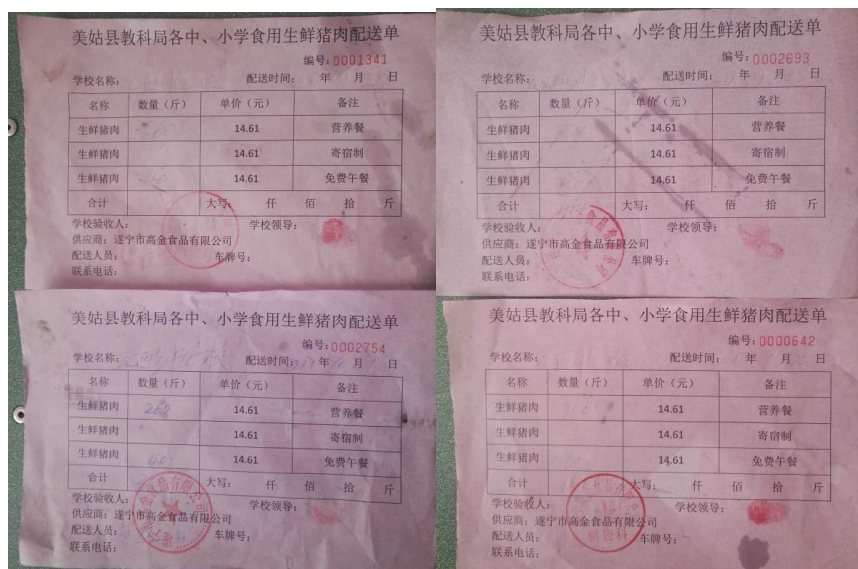 美姑县教科局各中、小学食用生鲜猪肉配送单
编号：0001341
学校名称： 配送时间： 年 月 日
名称 数量（斤） 单价（元） 备注
生鲜猪肉 14.61 营养餐
生鲜猪肉 14.61 寄宿制
生鲜猪肉 14.61 免费午餐
合计 大写： 仟 佰 拾 斤
学校验收人： 学校领导：
供应商：遂宁市高金食品有限公司
配送人员： 车牌号：
联系电话：
美姑县教科局各中、小学食用生鲜猪肉配送单
编号：0002693
学校名称： 配送时间： 年 月 日
名称 数量（斤） 单价（元） 备注
生鲜猪肉 14.61 营养餐
生鲜猪肉 14.61 寄宿制
生鲜猪肉 14.61 免费午餐
合计 大写： 仟 佰 拾 斤
学校验收人： 学校领导：
供应商：遂宁市高金食品有限公司
配送人员： 车牌号：
联系电话：
美姑县教科局各中、小学食用生鲜猪肉配送单
编号：0002754
学校名称： 配送时间： 年 月 日
名称 数量（斤） 单价（元） 备注
生鲜猪肉 14.61 营养餐
生鲜猪肉 14.61 寄宿制
生鲜猪肉 14.61 免费午餐
合计 大写： 仟 佰 拾 斤
学校验收人： 学校领导：
供应商：遂宁市高金食品有限公司
配送人员： 车牌号：
联系电话：
美姑县教科局各中、小学食用生鲜猪肉配送单
编号：0000642
学校名称： 配送时间： 年 月 日
名称 数量（斤） 单价（元） 备注
生鲜猪肉 14.61 营养餐
生鲜猪肉 14.61 寄宿制
生鲜猪肉 14.61 免费午餐
合计 大写： 仟 佰 拾 斤
学校验收人： 学校领导：
供应商：遂宁市高金食品有限公司
配送人员： 车牌号：
联系电话：